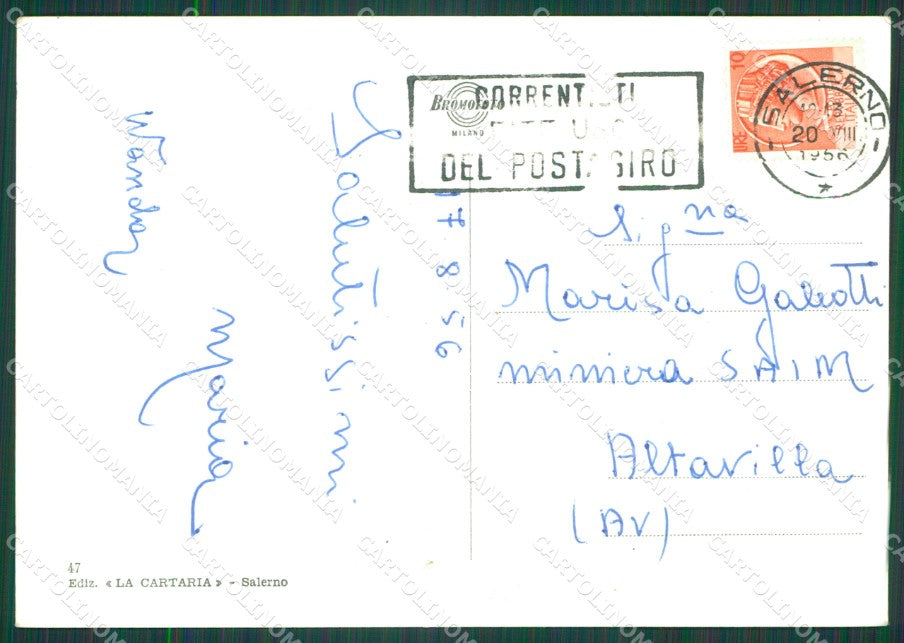 Salutissimi
17 8 56
Maria
Wanda
BROMOFOTO
MILANO
CORRENTISTI
DEL POSTAGIRO
SALERNO
20 VIII
1956
10
LIRE
Sig.na
Marisa Galeotti
miniera SAIM
Altavilla
(AV)
47
Ediz. « LA CARTARIA » - Salerno
CARTOLINOMANIA